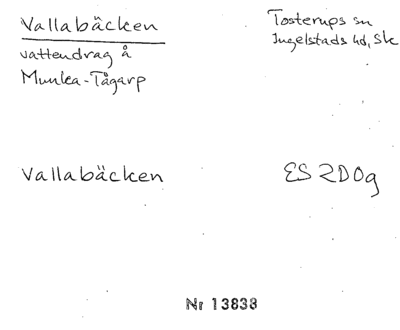 Vallabäcken
Tosterups sn
Ingelstads hd, Sk
vattendrag å
Munka-Tågarp
Vallabäcken
ES 2D0g
Nr 13838